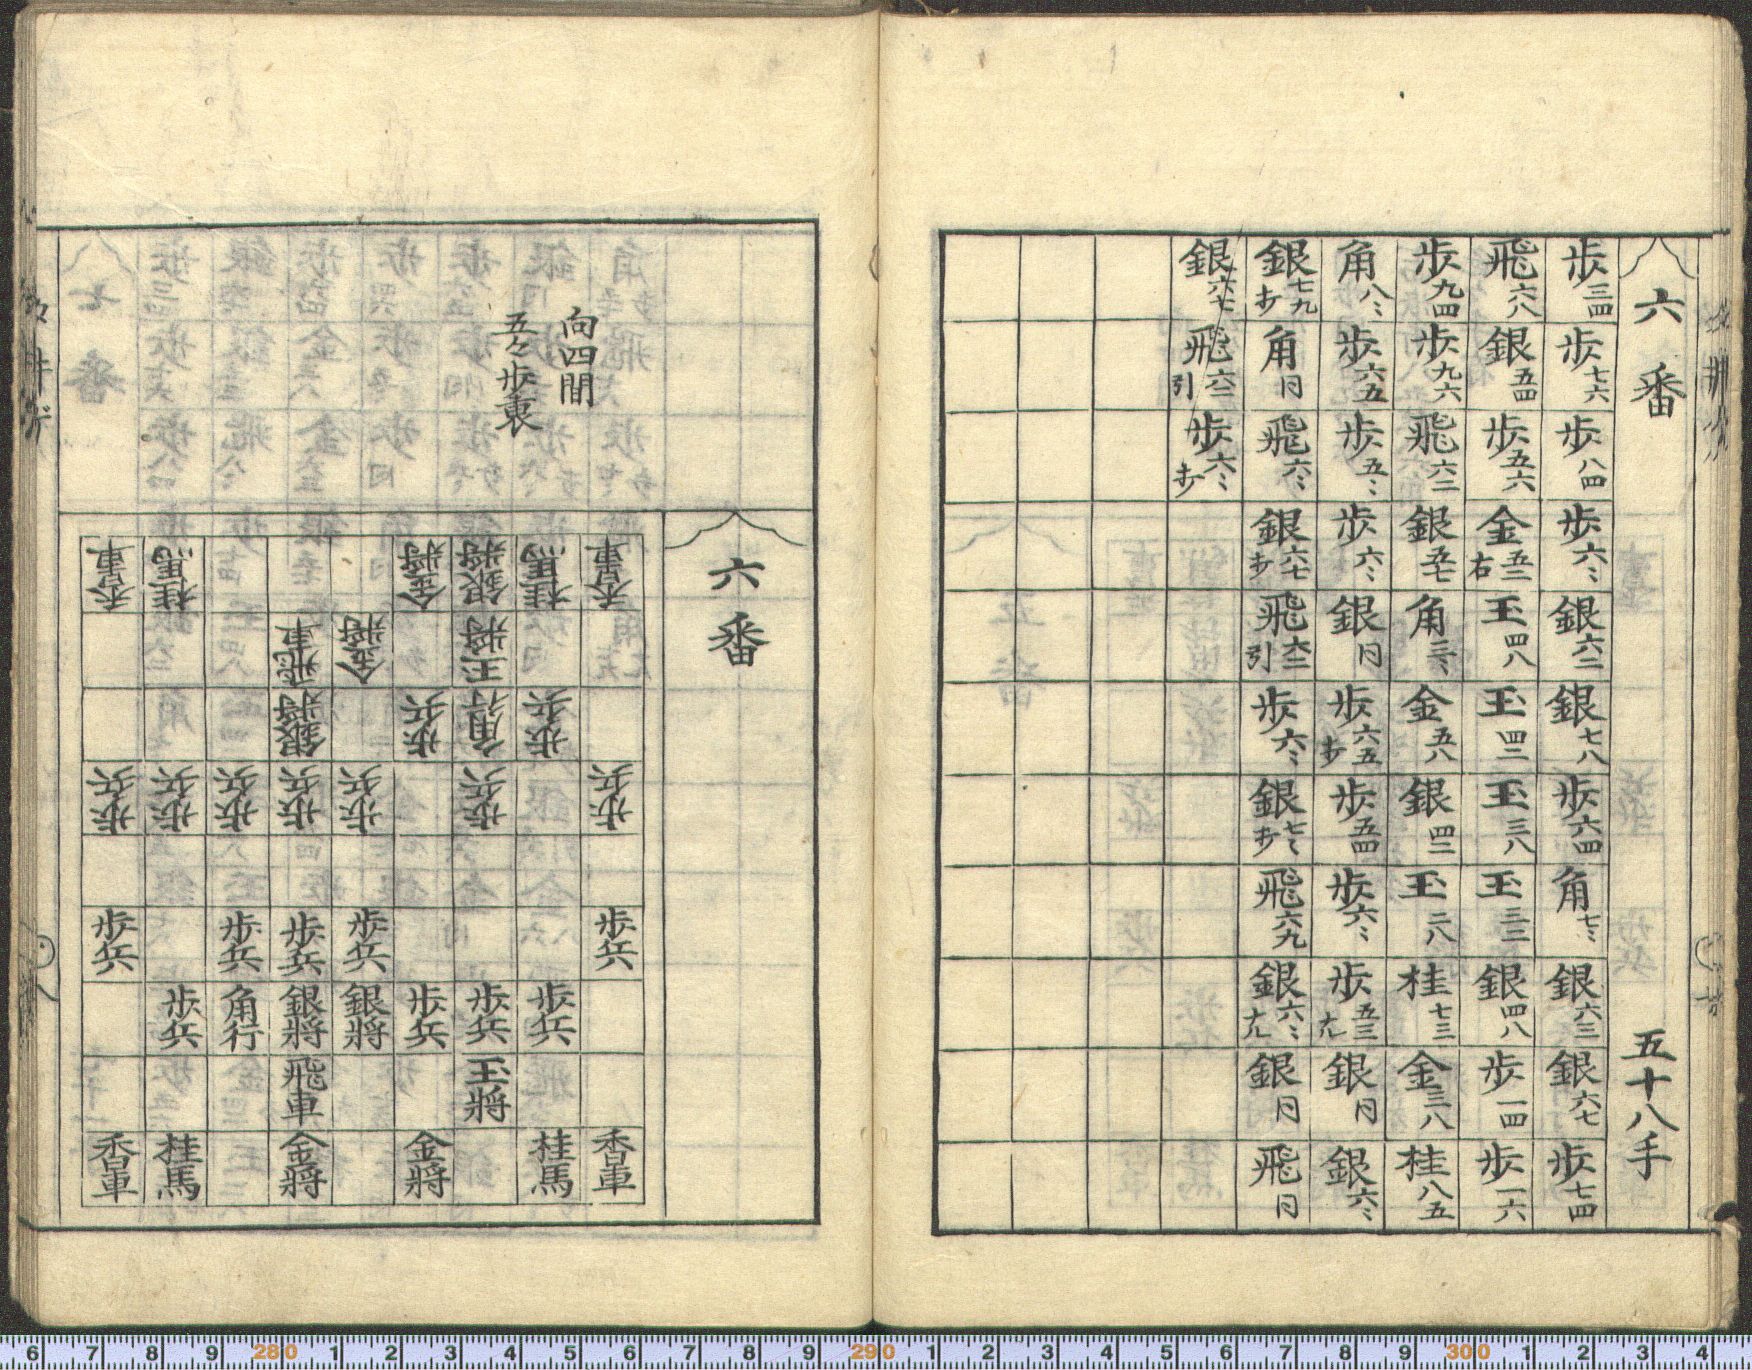 六番 五十八手
歩三四 歩七六 歩八四 歩六〻 銀六二 銀七八 歩六四 角七〻 銀六三 銀六七 歩七四
飛六八 銀五四 歩五六 金五二右 玉四八 玉四二 玉三八 玉三二 銀四八 歩一四 歩一六
歩九四 歩九六 飛六二 銀五七 角三〻 金五八 銀四二 玉二八 桂七三 金三八 桂八五
角八〻 歩六五 歩五〻 歩六〻 銀同 歩六五打 歩五四 歩六〻 歩五三ナル 銀同 銀六〻
銀七九打 角同 飛六〻 銀六七打 飛六二引 歩六〻 銀七七打 飛六九 銀六〻ナル 銀同 飛同
銀六七 飛六二引 歩六〻打
六番
向四間
五々歩
香車 桂馬 金將 銀將 桂馬 香車
飛車 金將 玉將
銀將 歩兵 角行 歩兵
歩兵 歩兵 歩兵 歩兵 歩兵 歩兵 歩兵
歩兵 歩兵 歩兵 歩兵 歩兵
歩兵 角行 銀將 銀將 歩兵 歩兵 歩兵
飛車 玉將
香車 桂馬 金將 金將 桂馬 香車
八